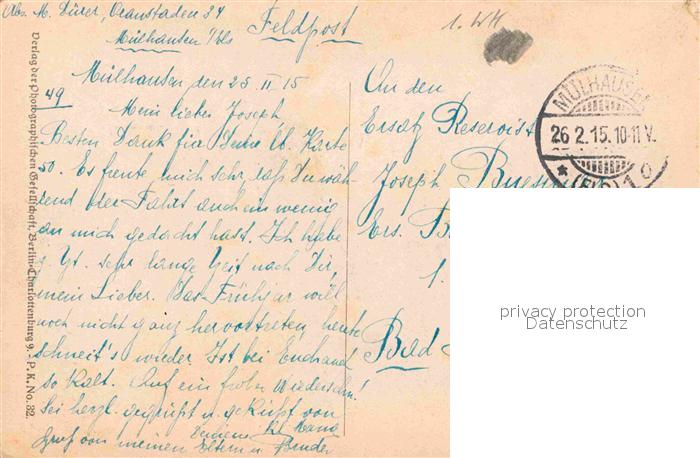 Abs. M. Dürer, 34
Mülhausen i/Els
Feldpost
1. WK
Mülhausen den 25 II 15
49
Mein lieber Joseph,
Besten Dank für Deine lb. Karte
50. Es freute mich sehr, daß Du wäh-
rend der Fahrt auch ein wenig
an mich gedacht hast. Ich habe
z. Zt. sehr lange Zeit nach Dir,
mein Lieber. Das Frühjar will
noch nicht ganz hervortreten, heute
schneit's wieder. Ist bei Euch auch
so kalt. Auf ein frohes Wiedersehn!
Sei herzl. gegrüßt u. geküßt von
Deiner kl.
Gruß von meinen Eltern u. Bruder
An den
Ersatz Reservist
Joseph
Ers. B
1.
Bad
MÜLHAUSEN
26.2.15.10-11V.
* (ELS) 1 o
Verlag der Photographischen Gesellschaft, Berlin-Charlottenburg 9. - P. K. No. 32.
privacy protection
Datenschutz